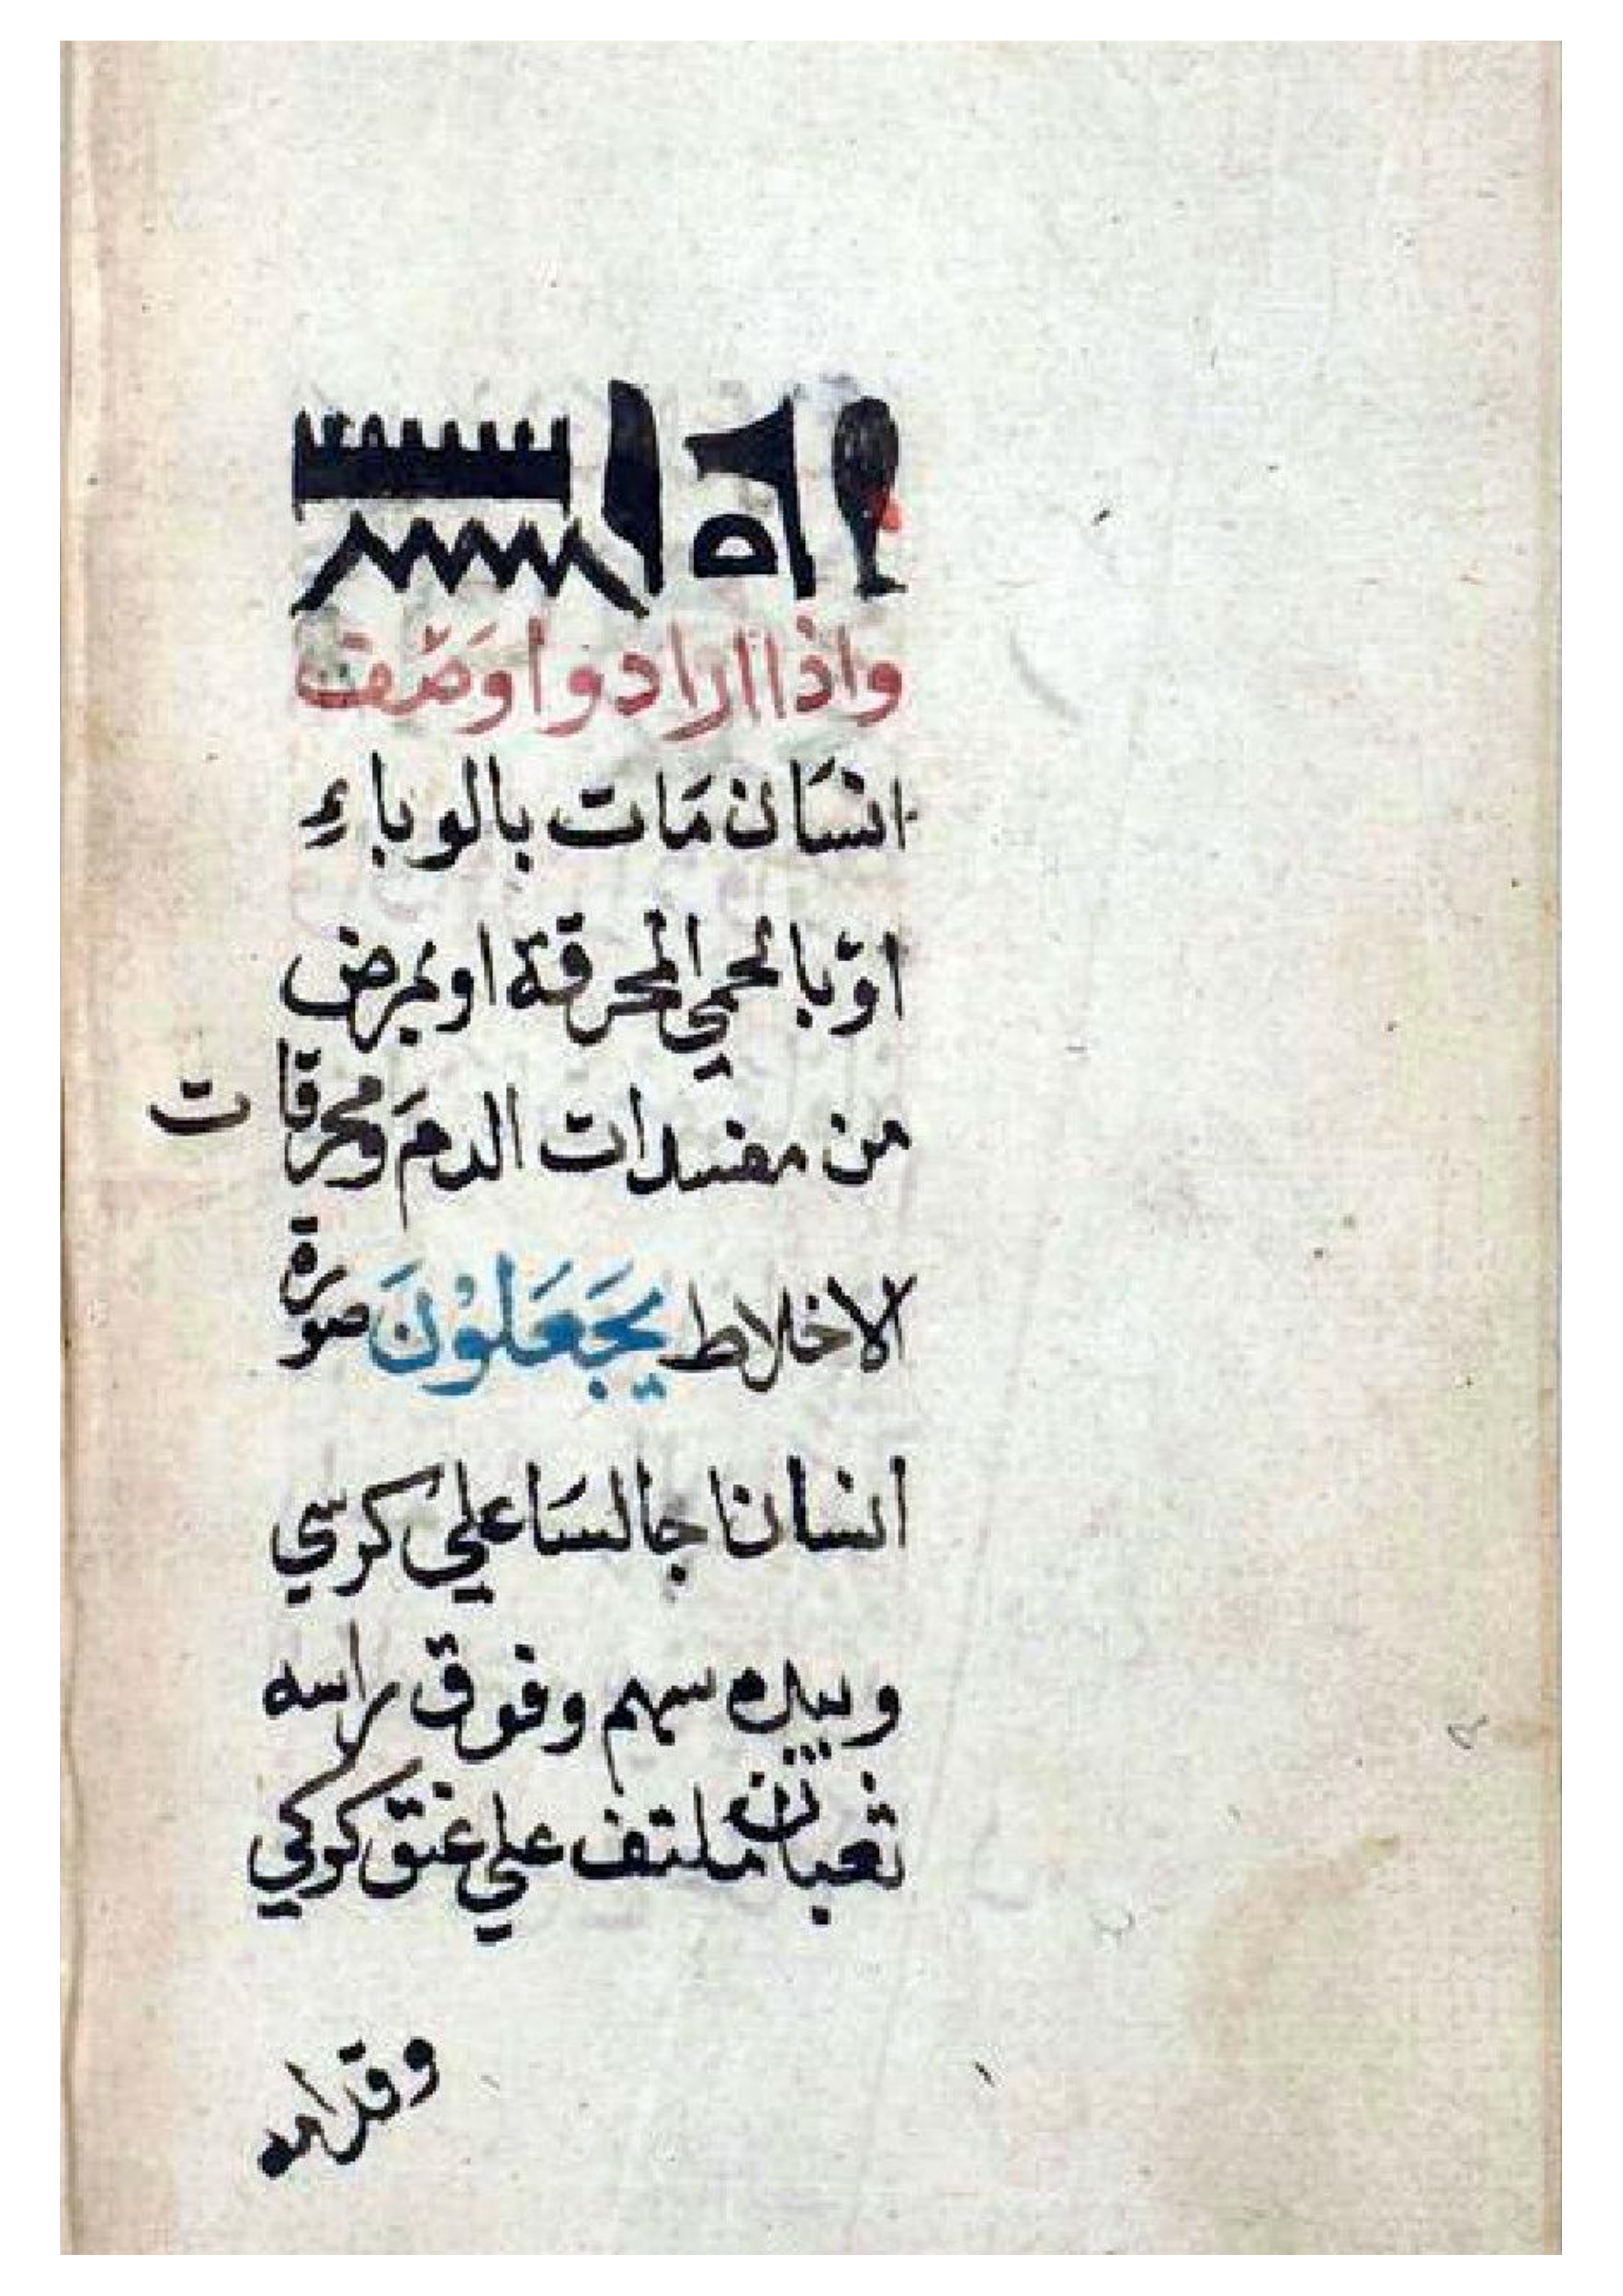 واذا ارادوا وَصْف
انسَان مَات بالوباءِ
اوْ بالحمي المحرقة او بمرض
من مفسدات الدمَ ومحرقات
الاخلاط يَجَعَلوُنَ صورة
انسانا جالسَا علي كرسي
وبيده سهم وفوق راسه
ثعبان ملتف علي عنق كركي